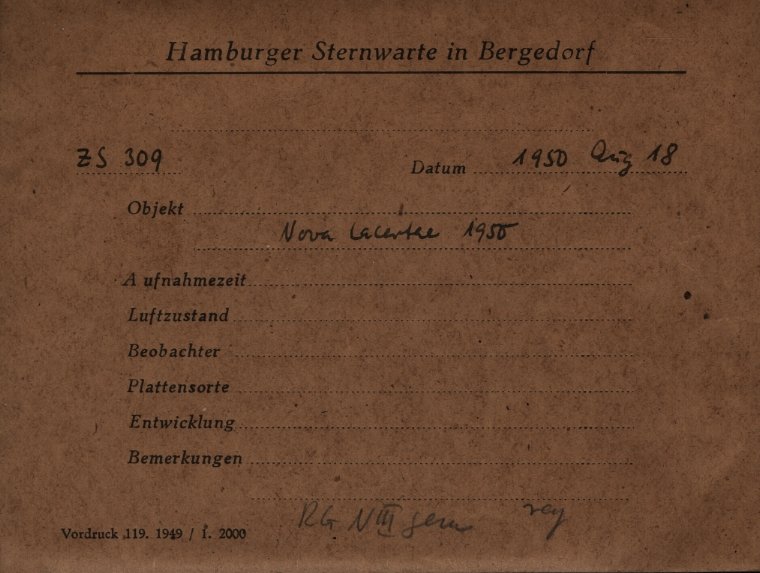 Hamburger Sternwarte in Bergedorf
ZS 309 Datum 1950 Aug 18
Objekt
Nova Lacertae 1950
Aufnahmezeit
Luftzustand
Beobachter
Plattensorte
Entwicklung
Bemerkungen
RG N III
Vordruck 119. 1949 / 1. 2000